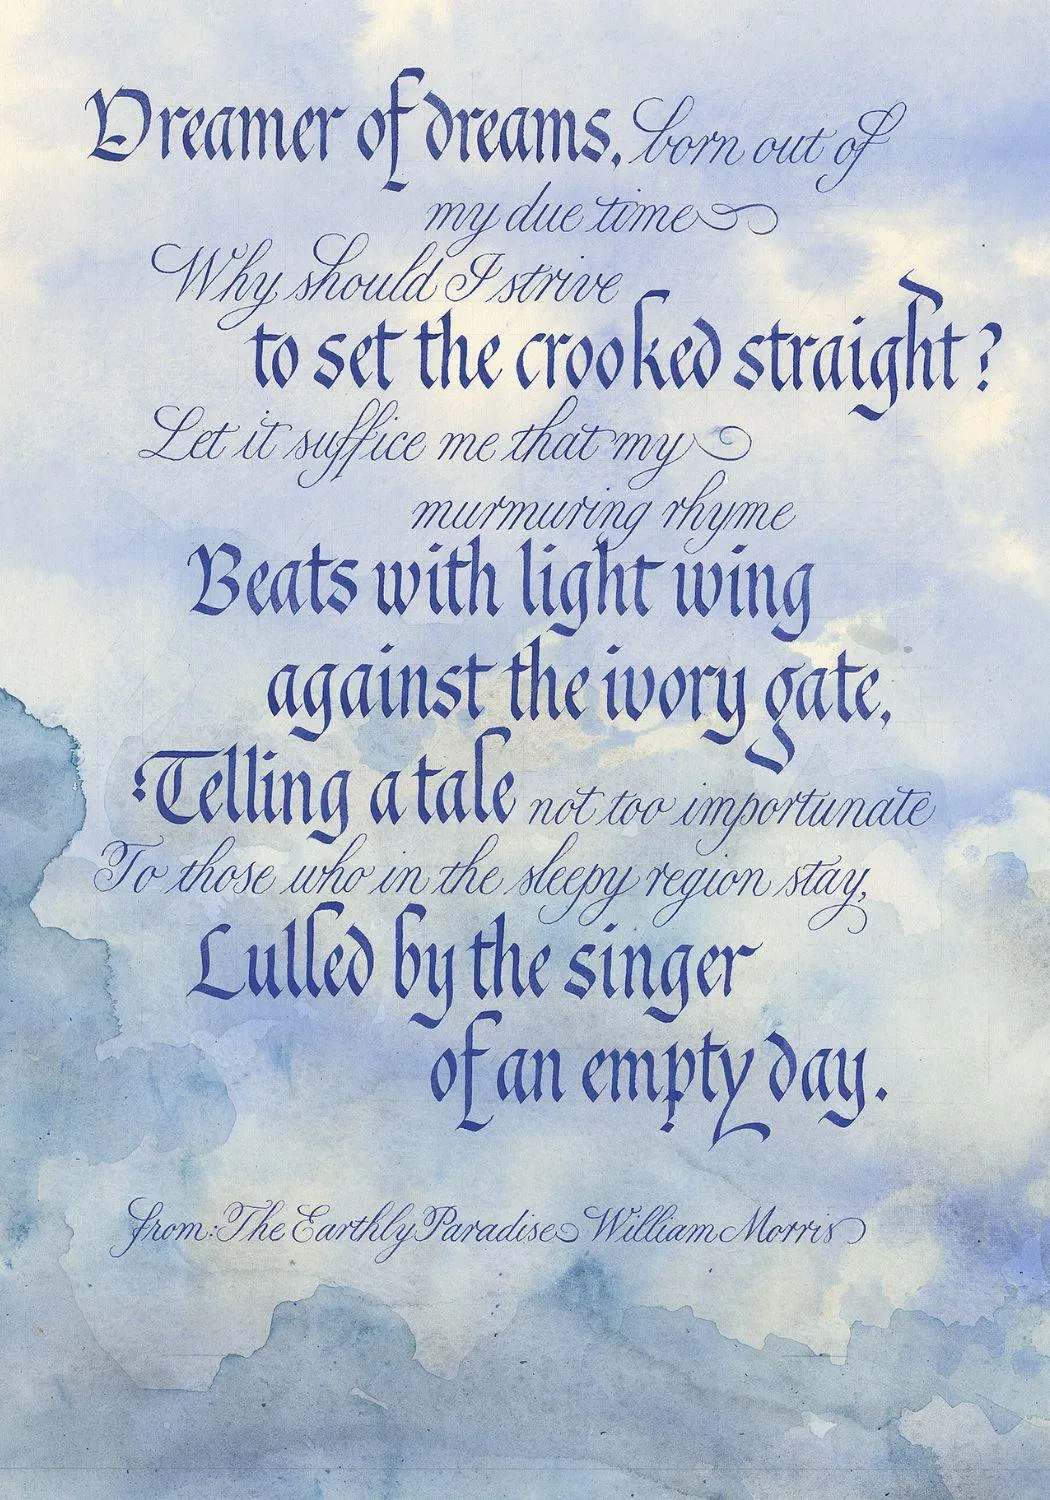 Dreamer of dreams, born out of
my due time
Why should I strive
to set the crooked straight?
Let it suffice me that my
murmuring rhyme
Beats with light wing
against the ivory gate,
Telling a tale not too importunate
To those who in the sleepy region stay,
Lulled by the singer
of an empty day.
from: The Earthly Paradise William Morris